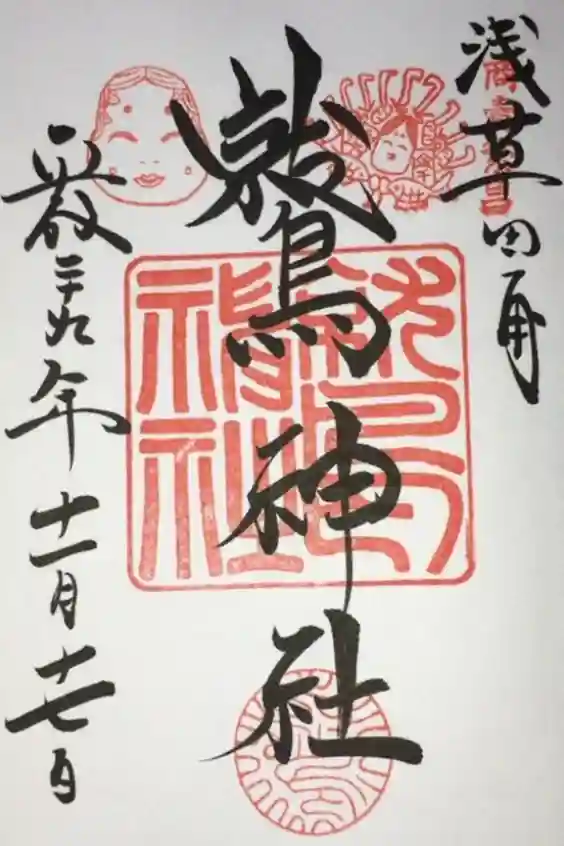 浅草田甫
鷲神社
平成二十九年十一月十七日